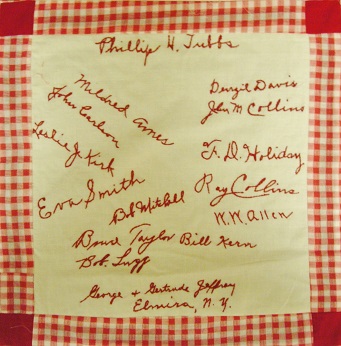 Phillip H. Tubbs
Mildred Ames
John Carlson
Leslie J. Kirk
Eva Smith
Denzil Davis
John M Collins
F. D. Holiday
Ray Collins
W. W. Allen
Bob Mitchell
Bruce Taylor
Bill Kern
Bob
George & Gertrude Jeffrey
Elmira, N. Y.